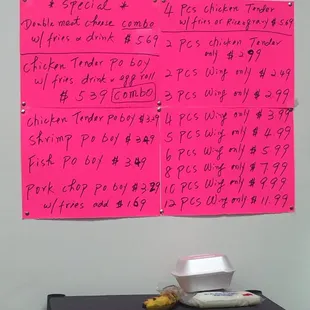 * Special *
Double meat cheese combo
w/ fries & drink $5.69
Chicken Tender Po boy
w/ fries drink & egg roll
$5.39 combo
Chicken Tender Po boy $3.29
Shrimp Po boy $3.49
Fish Po boy $3.49
Pork chop Po boy $3.29
w/ fries add $1.69
4 Pcs chicken Tender
w/ fries or Rice gravy $5.69
2 Pcs chicken Tender
only $2.99
2 Pcs Wing only $2.49
3 Pcs Wing only $2.99
4 Pcs Wing only $3.99
5 Pcs Wing only $4.99
6 Pcs Wing only $5.99
8 Pcs Wing only $7.99
10 Pcs Wing only $9.99
12 Pcs Wing only $11.99